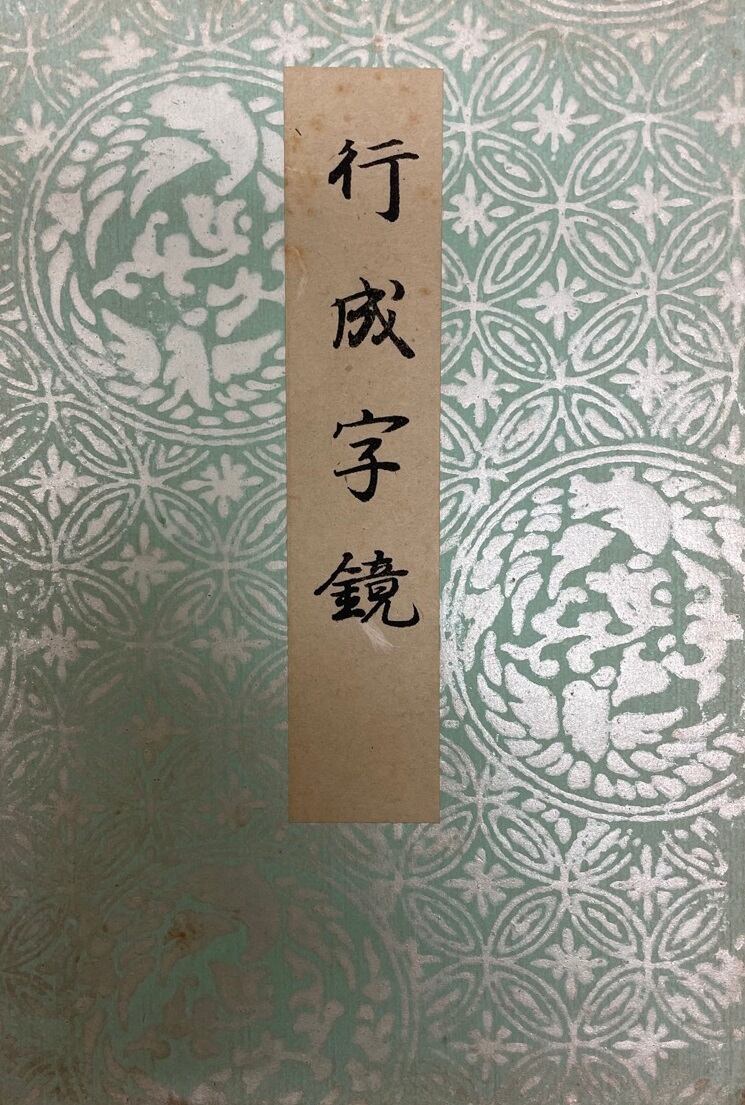 行成字鏡